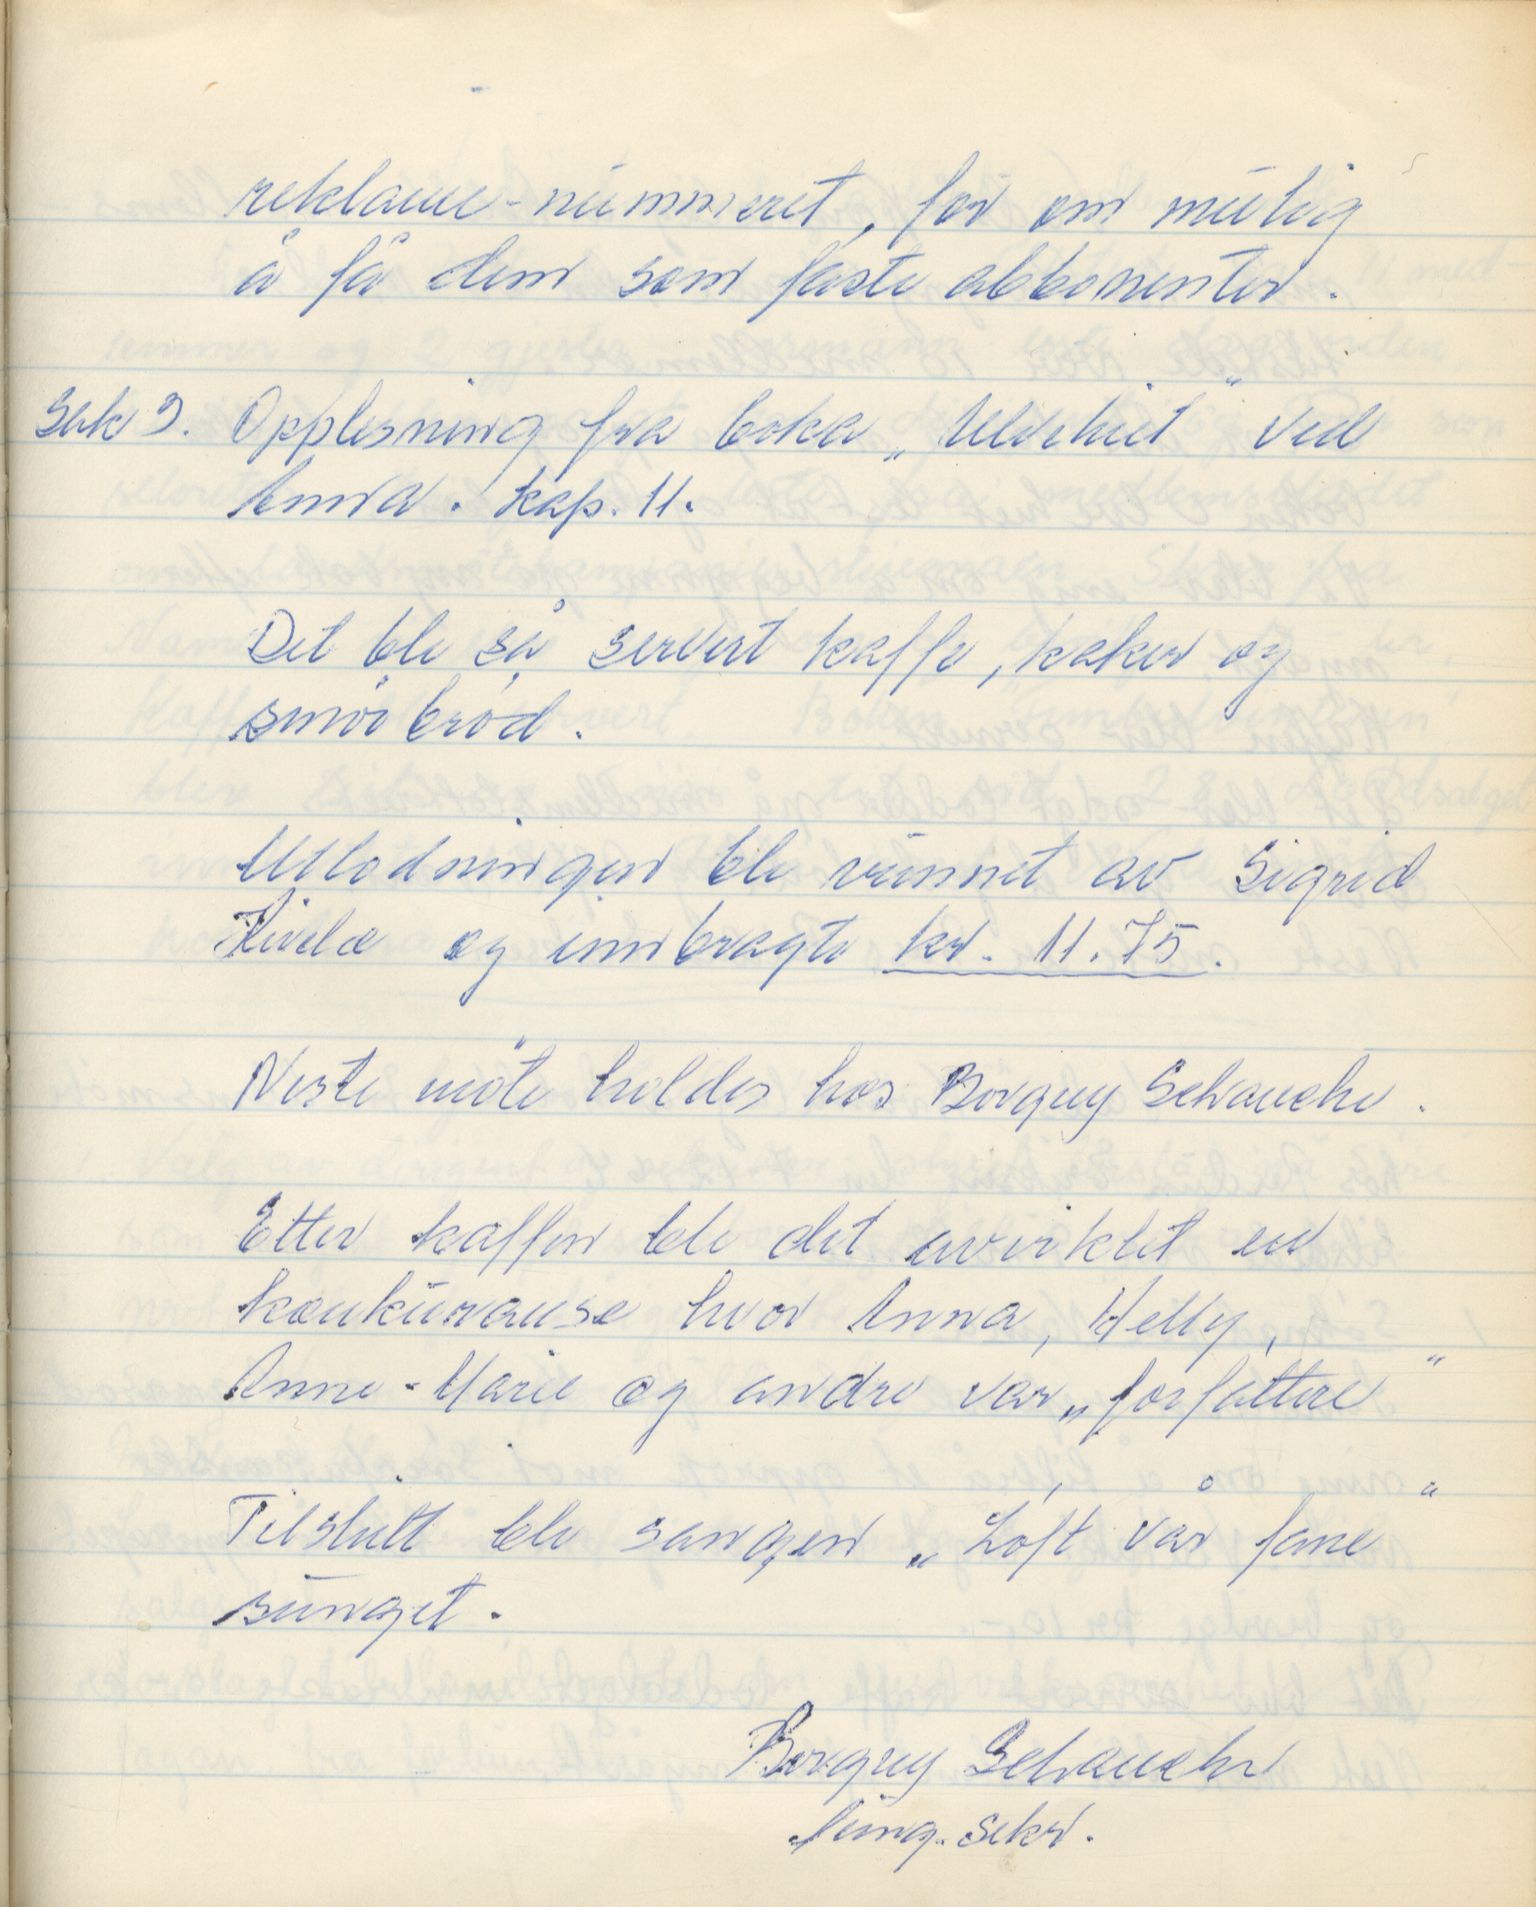 reklame-nummeret, for om mulig
å få dem som faste abbonenter.
Sak 3. Opplesning fra boka „Ulvehiet" ved
Anna. kap. 11.
Det ble så servert kaffe, kaker og
smörbröd.
Utlodningen ble vunnet av Sigrid
Kivelæ og innbragte kr. 11.75.
Neste möte holdes hos Borgny Schanche.
Etter kaffen ble det avviklet en
konkuranse hvor Anna, Helly,
Anne-Marie og andre var „forfattere"
Tilslutt ble sangen „Löft vår fane"
sunget.
Borgny Schanche
fung. sekr.